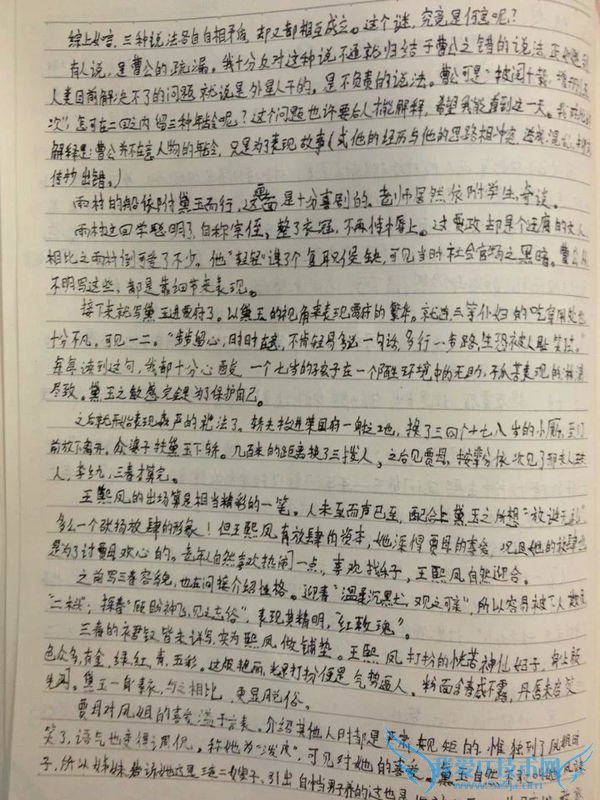 综上如言,三种说法各自相平傍,却又都相互成立。这个谜,究竟是何意呢?
有人说,是曹公的疏漏。我十分反对这种说不通就归结于曹公之错的说法,正如
人类目前解决不了的问题就说是外星人干的,是不负责的说法。曹公可是“披阅十载,增删五
次”,怎可在二回之内留三种年龄呢?这个问题也许要后人才能解释,希望我能看到这一天。我
解释是:曹公并不在意人物的年龄,只是为了表现故事(或他的经历与他的思路相冲突,造成混乱,
传抄出错。)
雨村的船依附黛玉而行,这画面是十分喜剧的。老师居然依附学生,奇谈。
雨村这回学聪明了,自称宗侄,整了衣冠,不再恃才辱上。这贾政却是个迂腐的文人,
相比之雨村倒可爱了不少。他“轻轻”谋了个复职候缺,可见当时社会官场之黑暗。曹公从
不明写这些,都是靠细节来表现。
接下来就写黛玉进贾府了。以黛玉的视角来表现贾府的繁华。就连三等仆妇的吃穿用度也
十分不凡,可见一二。“步步留心,时时在意,不肯轻易多说一句话,多行一步路,生恐被人耻笑法。”
每每读到这句,我都十分心酸,一个七岁的孩子在一个陌生环境中的无助,孤苦表现的淋漓
尽致。黛玉之敏感完全是为了保护自己。
之后就开始表现森严的礼法了。轿夫抬进荣国府一射之地,换了三四个十七八岁的小厮,至
前放下离开。众婆子扶黛玉下轿。几百米的距离换了三拨人,之后见贾母,按辈分依次见了邢夫人,王夫
人,李纨,三春才算完。
王熙凤的出场算是相当精彩的一笔。人未至而声已至,配合上黛玉之所想“放诞无礼”
多么一个张扬放肆的形象!但王熙凤有放肆的资本,她深得贾母的喜爱,况且她的放肆也
是为了讨贾母欢心的。老年人自然喜欢热闹一点,喜欢找乐子,王熙凤自然迎合。
之前写三春容貌,也在间接介绍性格。迎春“温柔沉默,观之可亲”,所以容易被下人欺
“二木头”;探春“顾盼神飞,见之忘俗”,表现其精明,“红玫瑰”。
三春的衣着钗裙皆未详写,实为熙凤做铺垫。王熙凤打扮的恍若神仙妃子,身上颜
色众多,有金,绿,红,青,五彩。这便艳丽,光是打扮便是气势逼人。粉面含春威不露,丹唇未启笑
先闻。黛玉一身素衣,与之相比,更显脱俗。
贾母对凤姐的喜爱溢于言表。介绍其他人时都是严肃规矩的,惟独到了凤姐
笑了,语气也变得诙谐。称她为“泼皮”,可见对她的喜爱。黛玉自然不
子,所以姊妹告诉她这是琏二嫂子,引出自幼当男子养的